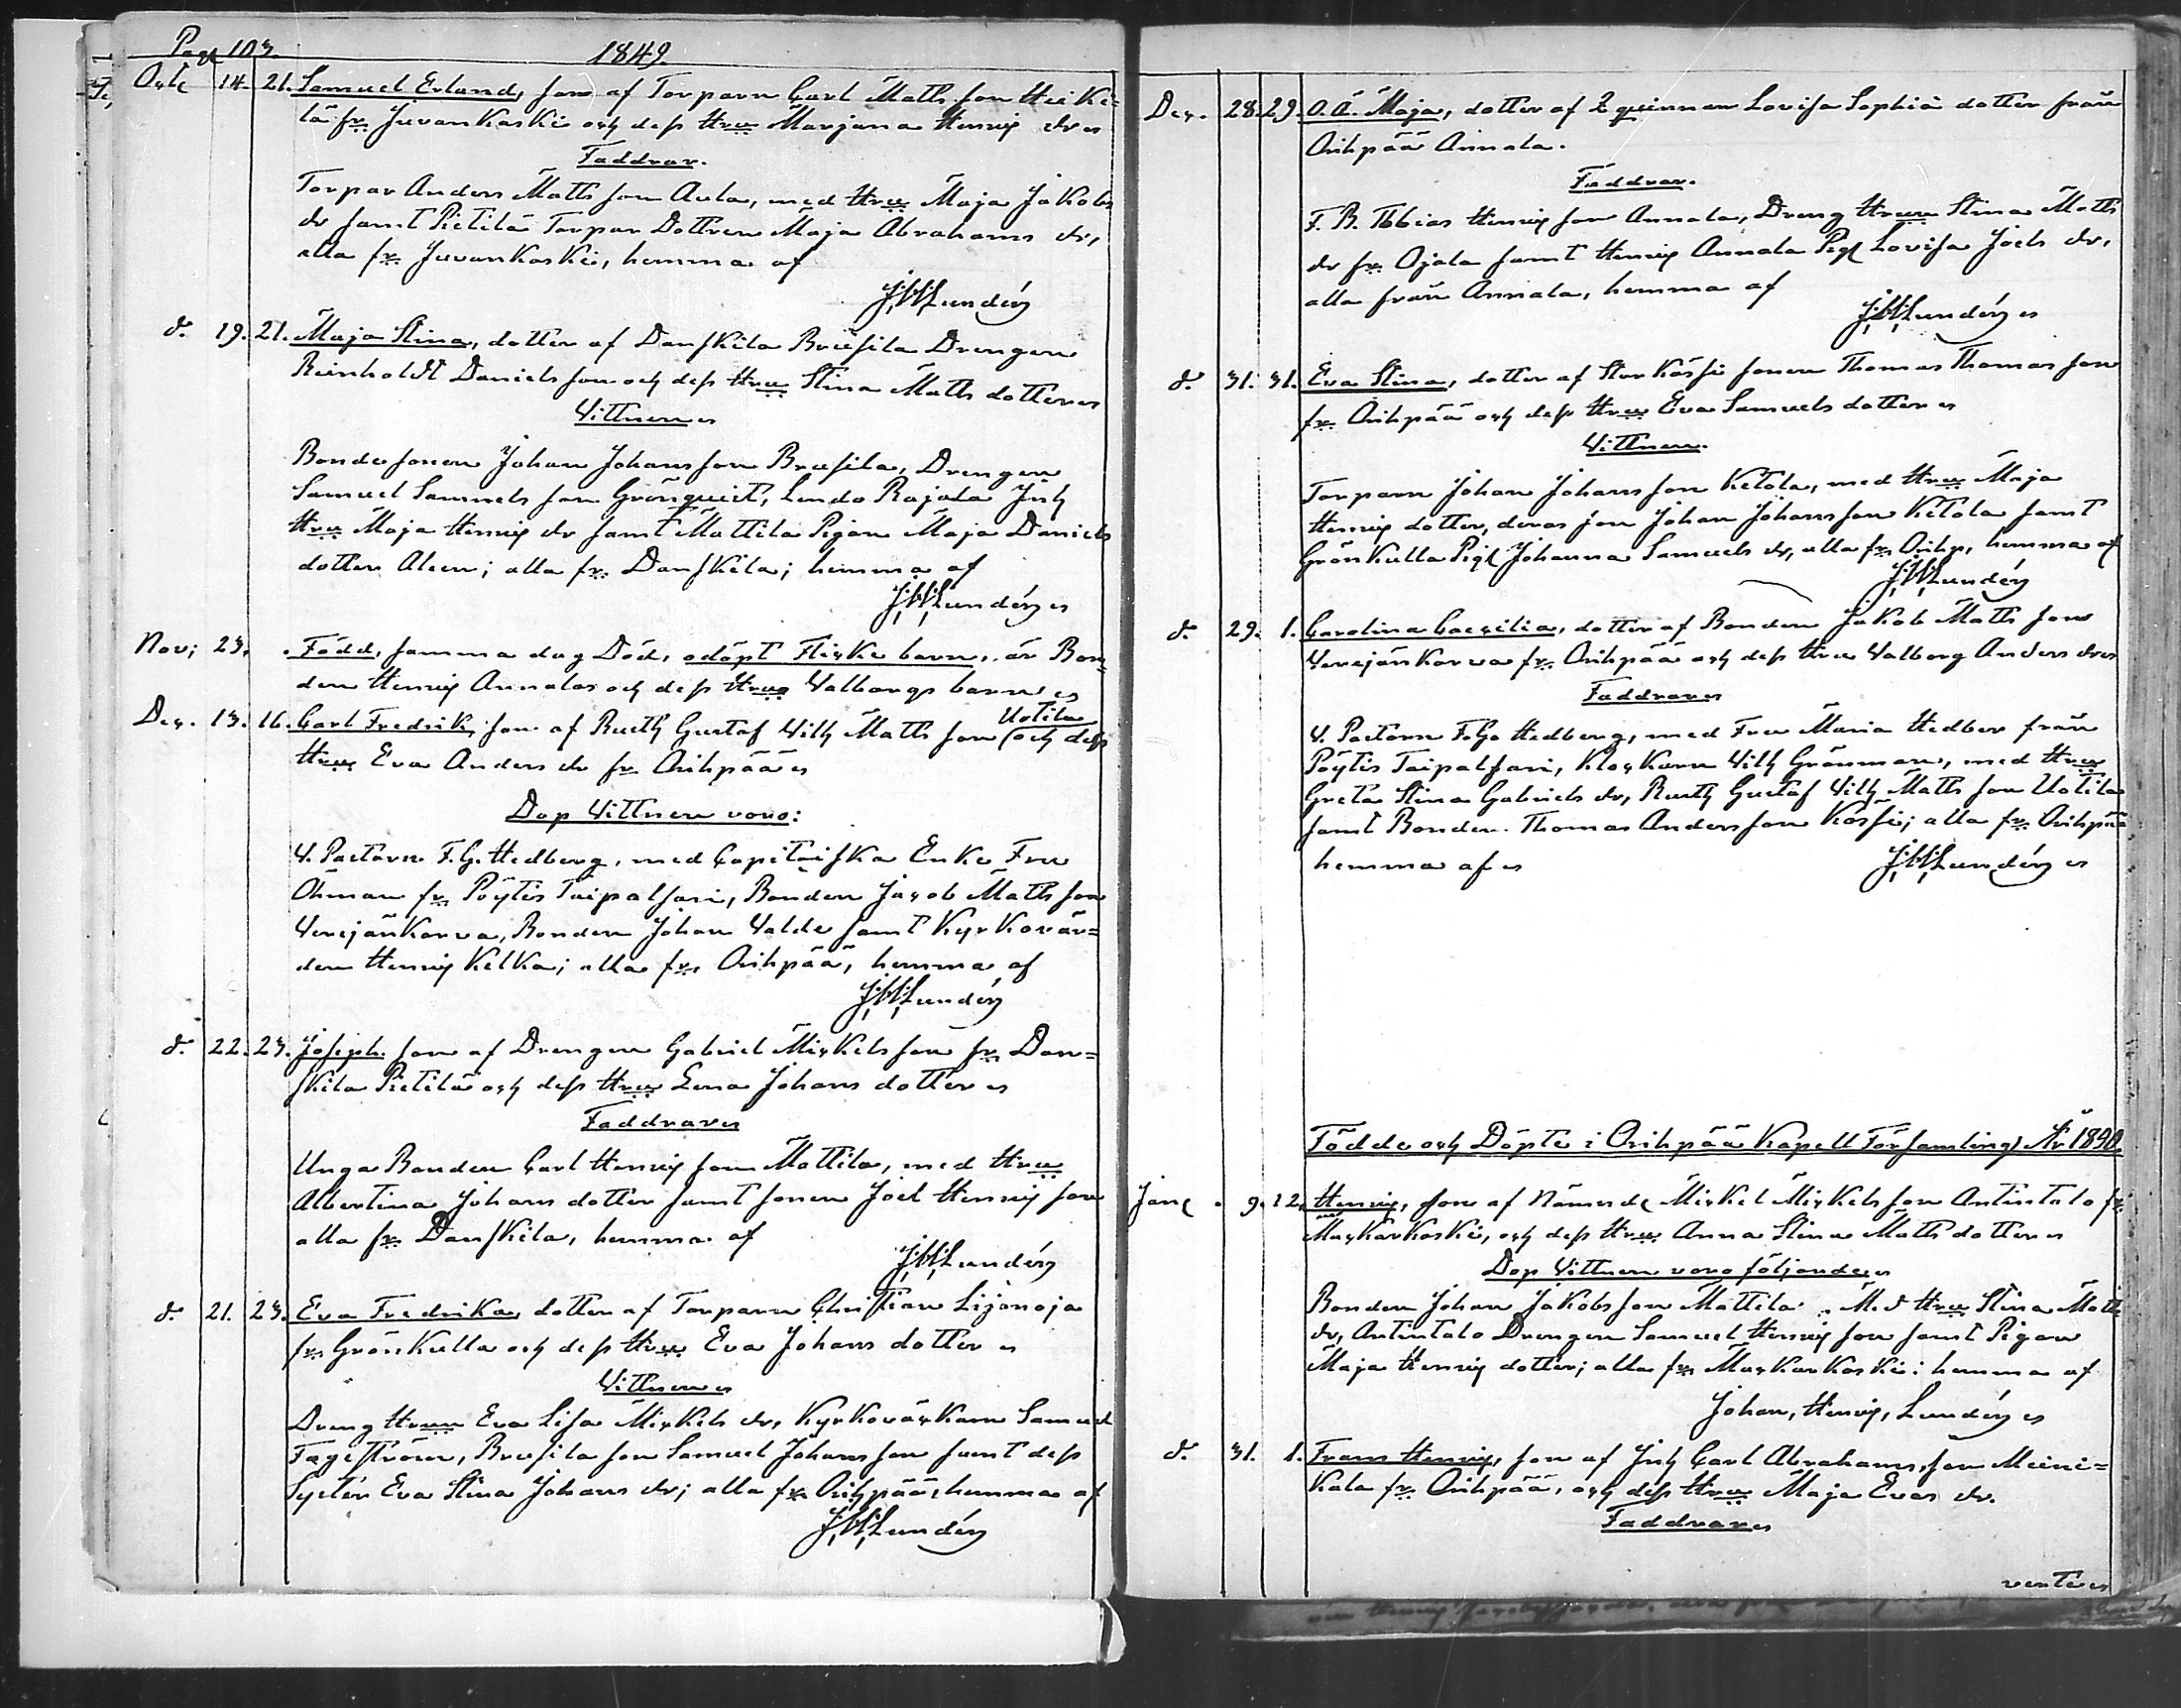 Page 103.
1849.
Octr 14. 21. Samuel Erland, son af Torparn Carl Matts son Heiki=
lä fr. Juvankoski och dess Hru Marjana Henrics dr
Faddrar.
Torpar Anders Matts son Aula, med Hru Maja Jakobs
dr samt Pietilä Torpar Dottren Maja Abrahams dr,
alla fr. Juvankoski, hemma af
J.H.Lundén
d. 19. 21. Maja Stina, dotter af Danskila Brusila Drengen
Reinholdt Daniels son och dess Hru Stina Matts dotter
Vittnen
Bonde sonen Johan Johans son Brusila, Drengen
Samuel Samuels son Grönqvist, Rajala Inh
Hru Maja Henrics dr samt Mattila Pigan Maja Daniels
dotter Alen; alla fr. Danskila; hemma af
J.H.Lundén
Nov; 23. Född, samma dag Död, odöpt Flicke barn, är Bon-
den Henric Annalas och dess Hrus Valborgs barn
Dec. 13. 16. Carl Fredrik, son af Rusth Gustaf Wilh Matts son Uotila (och dess
Hru Eva Anders dr fr Orihpää
Dop Vittnen voro:
V. Pastorn F.G. Hedberg, med Capitaiska Enke Fru
Öhman fr Pöytis Taipalsari, Bonden Jacob Matts son
Verejänkorva, Bonden Johan Valde samt Kyrkovär=
den Henric Kelka; alla fr. Orihpää, hemma af
J.H.Lundén
d. 22. 23. Joseph. son af Drengen Gabriel Mickels son fr. Dan=
skila Pietilä och dess Hru Lena Johans dotter
Faddrar
Unga Bonden Carl Henric son Mattila, med Hru
Albertina Johans dotter samt sonen Joel Henric son
alla fr. Danskila, hemma af
J.H.Lundén
d. 21. 23. Eva Fredrika, dotter af Torparn Christian Lijanoja
fr. Grönkulla och dess Hru Eva Johans dotter
Vittnen
Dreng Hrun Eva Lisa Mickels dr, Kyrkoväckarn Samuel
Fagerström, Brusila son Samuel Johans son samt dess
Syster Eva Stina Johans dr; alla fr. Orihpää, hemma af
J.H.Lundén
Dec. 28. 29. O.Ä. Maja, dotter af Qvinnan Lovisa Sophia dotter från
Orihpää Annala.
Faddrar.
F.B. Tobias Henric son Annala, Dreng Hrun Stina Matts
dr fr. Ojala samt Henric Annala Pig Lovisa Joels dr,
alla från Annala, hemma af
J.H.Lundén
d. 31. 31. Eva Stina, dotter af Stor Kässi sonen Thomas Thomas son
fr. Orihpää och dess Hru Eva Samuels dotter
Vittnen.
Torparn Johan Johans son Ketola, med Hru Maja
Henrics dotter, deras son Johan Johans son Ketola samt
Grönkulla Pig Johanna Samuels dr, alla fr. Orihp, hemma af
J.H.Lundén
d. 29. 1. Carolina Caecilia, dotter af Bonden Jakob Matts son
Verejänkorva fr. Orihpää och dess Hru Valborg Anders dr
Faddrar
V. Pastorn F.G. Hedberg, med Fru Maria Hedber från
Pöytis Taipalsari, Klockarn Wilh Grönman, med Hru
Greta Stina Gabriels dr, Rusth Gustaf Wilh Matts son Uotila
samt Bonden. Thomas Anders son Kässi; alla fr. Orihpää
hemma af J.H.Lundén
Födde och Döpte i Orihpää Kapell Församling År 1850.
Jan 9. 12. Henric, son af Nämnde Mickel Mickels son Antintalo fr.
Muckarkoski, och dess Hru Anna Stina Matts dotter
Dop Vittnen voro följande
Bonden Johan Jakobs son Mattila. Med Hru Stina Matts
dr, Antintalo Drengen Samuel Henric son samt Pigan
Maja Henric dotter; alla fr. Muckarkoski; hemma af
Johan, Henric, Lundén
d. 31. 1. Frans Henric, son af Inh Carl Abrahams son Meini=
kala fr. Orihpää, och dess Hru Maja Evas dr.
Faddrar
verte